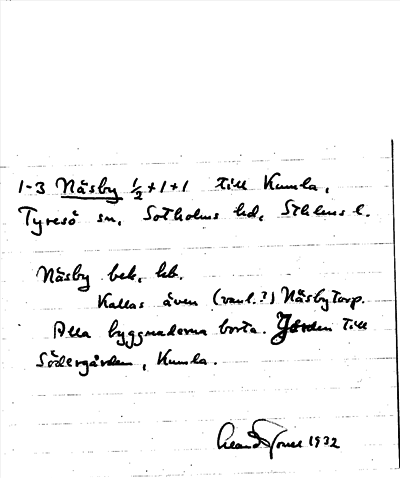 1-3 Näsby 1/2+1+1 till Kumla,
Tyresö sn, Sotholms hd, Sthlms l.
Näsby bek. kb.
Kallas även (vanl.?) Näsbytorp.
Alla byggnaderna borta. Jorden till
Södergården, Kumla.
1932